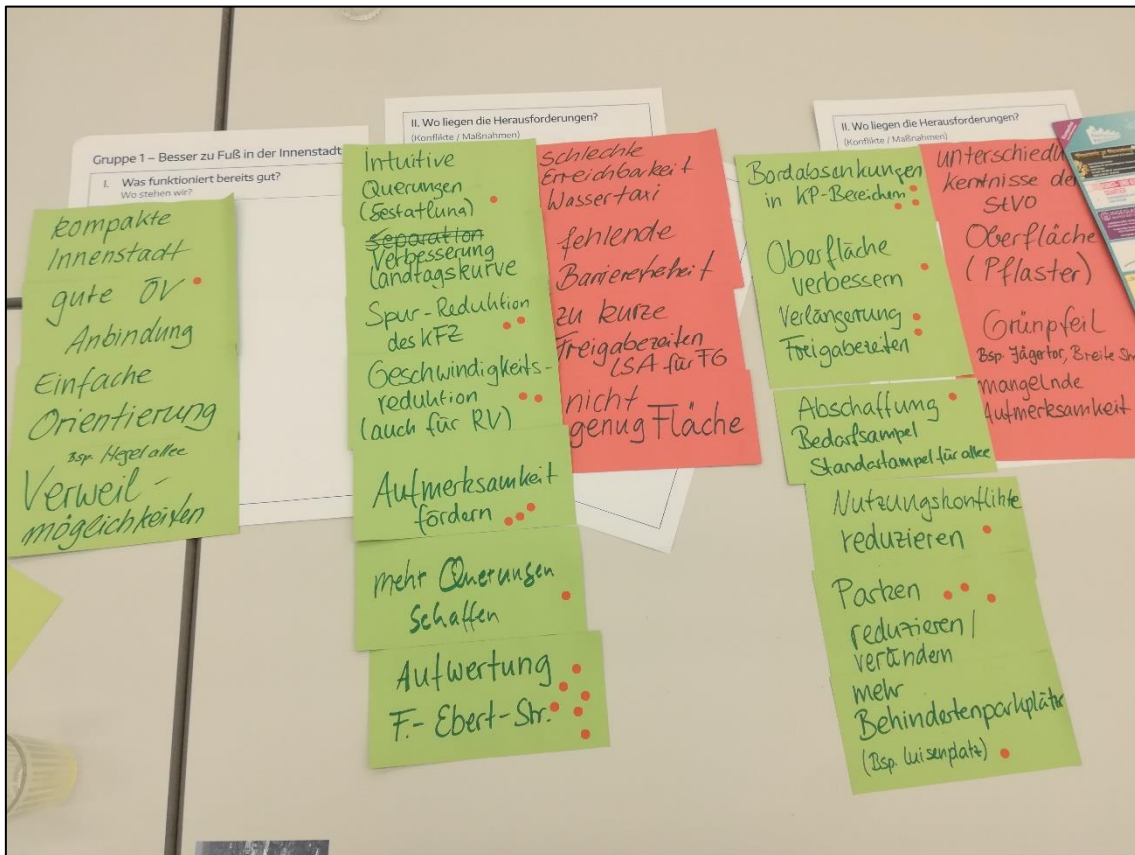 Gruppe 1 – Besser zu Fuß in der Innenstadt
I. Was funktioniert bereits gut?
Wo stehen wir?
kompakte
Innenstadt
gute ÖV
Anbindung
Einfache
Orientierung
Bsp. Hegelallee
Verweil-
möglichkeiten
II. Wo liegen die Herausforderungen?
(Konflikte / Maßnahmen)
Intuitive
Querungen
(Gestatlung)
Separation
Verbesserung
Landtagskurve
Spur-Reduktion
des KFZ
Geschwindigkeits-
reduktion
(auch für RV)
Aufmerksamkeit
fördern
mehr Querungen
schaffen
Aufwertung
F.-Ebert-Str.
Schlechte
Erreichbarkeit
Wassertaxi
fehlende
Barrierefreiheit
zu kurze
Freigabezeiten
LSA für FG
nicht
genug Fläche
II. Wo liegen die Herausforderungen?
(Konflikte / Maßnahmen)
Bordabsenkungen
in KP-Bereichen
Oberfläche
verbessern
Verlängerung
Freigabezeiten
Abschaffung
Bedarfsampel
Standartampel für alle
Nutzungskonflikte
reduzieren
Parken
reduzieren/
verändern
mehr
Behindertenparkplätze
(Bsp. Luisenplatz)
unterschiedl
kentnisse der
StVO
Oberfläche
(Pflaster)
Grünpfeil
Bsp. Jägertor, Breite Str
mangelnde
Aufmerksamkeit